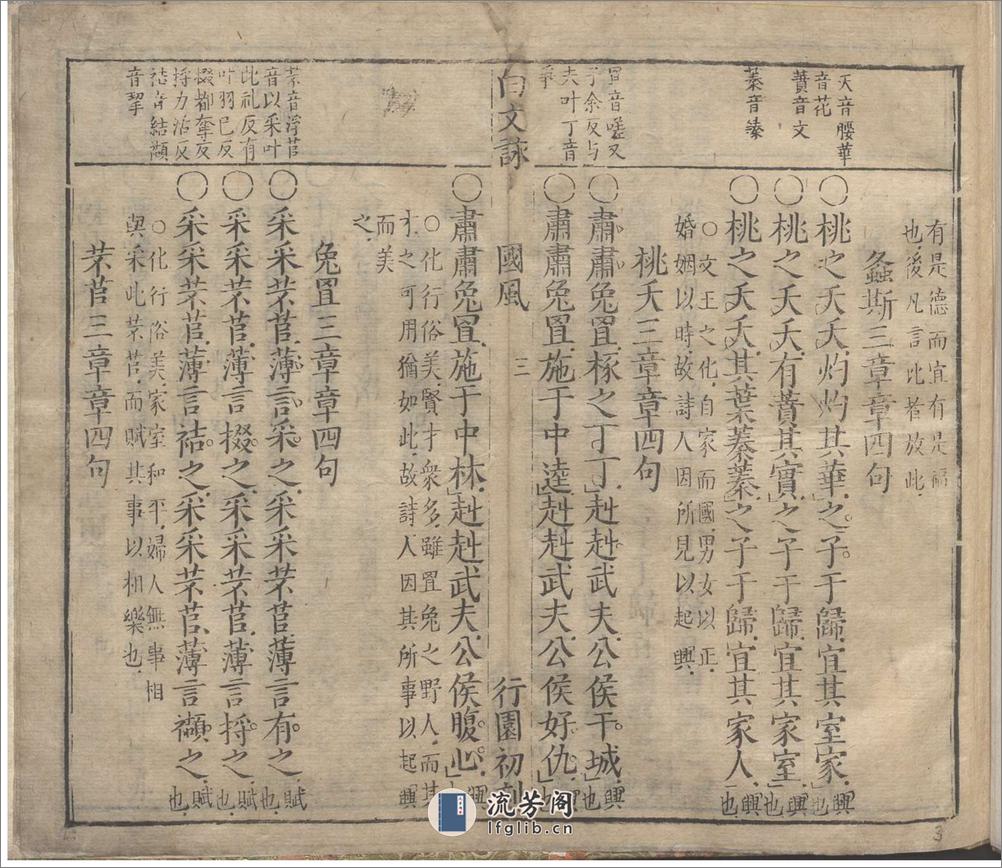 夭音腰華
音花
蕡音文
蓁音臻
有是德而宜有是福
也後凡言比者放此
螽斯三章章四句
〇桃之夭夭灼灼其華之子于歸宜其室家興也
〇桃之夭夭有蕡其實之子于歸宜其家室興也
〇桃之夭夭其葉蓁蓁之子于歸宜其家人興也
〇文王之化自家而國男女以正
婚姻以時故詩人因所見以起興
桃夭三章章四句
罝音嗟又
子余反与
夫叶丁音
爭
〇肅肅兔罝椓之丁丁赳赳武夫公侯干城興也
〇肅肅兔罝施于中逵赳赳武夫公侯好仇興也
白文詠
國風
三
行園初刻
〇肅肅兔罝施于中林赳赳武夫公侯腹心興也
〇化行俗美賢才衆多雖罝兔之野人而其
才之可用猶如此故詩人因其所事以起興
而美之
兔罝三章章四句
芣音浮苢
音以采叶
此礼反有
叶羽已反
掇都奪反
捋力活反
袺音結襭
音挈
〇采采芣苢薄言采之采采芣苢薄言有之賦也
〇采采芣苢薄言掇之采采芣苢薄言捋之賦也
〇采采芣苢薄言袺之采采芣苢薄言襭之賦也
〇化行俗美家室和平婦人無事相
與采此芣苢而賦其事以相樂也
芣苢三章章四句
流芳阁
lfglib.cn
3